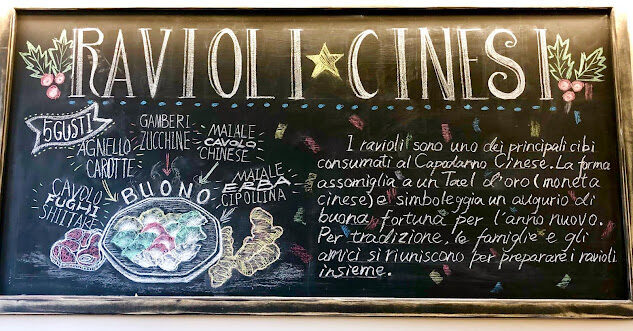 RAVIOLI CINESI
5 GUSTI
AGNELLO
CAROTTE
GAMBERI
ZUCCHINE
MAIALE
CAVOLO
CHINESE
CAVOLO
FUGHI
SHIITAKE
MAIALE
ERBA
CIPOLLINA
BUONO
I ravioli sono uno dei principali cibi
consumati al Capodanno Cinese. La forma
assomiglia a un Tael d'oro (moneta
cinese) e simboleggia un augurio di
buona fortuna per l'anno nuovo.
Per tradizione, le famiglie e gli
amici si riuniscono per preparare i ravioli
insieme.